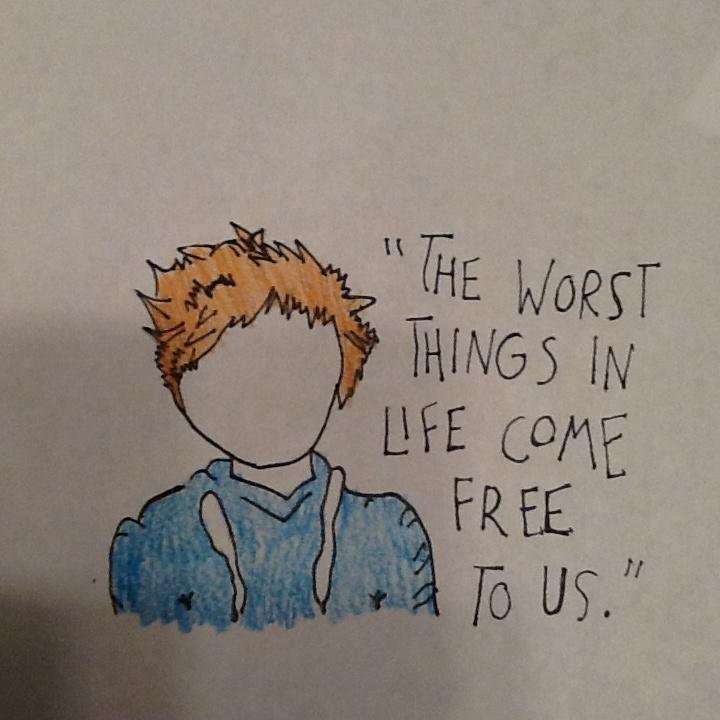 "THE WORST
THINGS IN
LIFE COME
FREE
TO US."